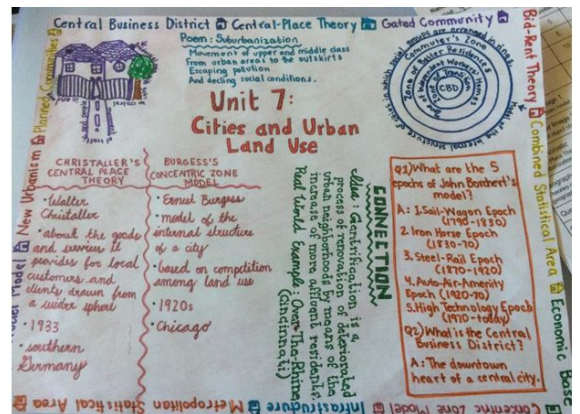 Central Business District Central-Place Theory Gated Community
Bid-Rent Theory Combined Statistical Area Economic Base
Concentric Zone Model Infrastructure Metropolitan Statistical Area
Model New Urbanism Planned Communities
Poem: Suburbanization
Movement of upper and middle class
From urban areas to the outskirts
Escaping pollution
And social conditions.
Unit 7:
Cities and Urban
Land Use
Commuter's Zone
Zone of Better Residences
Zone of Independent Workers' Homes
Zone of Transition
CBD
CHRISTALLER'S
CENTRAL PLACE
THEORY
• Walter
Christaller
• about the goods
and services it
provides for local
customers and
clients drawn from
a
• 1933
• southern
Germany
BURGESS'S
CONCENTRIC ZONE
MODEL
• Ernest Burgess
• model of the
internal structure
of a city
• based on competition
among land use
• 1920s
• Chicago
CONNECTION
Idea: Gentrification is a
process of renovation of deteriorated
urban neighborhoods by means of the
increase of more affluent residents.
Real World Example: Over-Tha-Rhine
(Cincinnati)
Q1)What are the 5
epochs of John Borchert's
model?
A: 1.Sail-Wagon Epoch
(1790-1830)
2 Iron Horse Epoch
(1830-70)
3. Steel-Rail Epoch
(1870-1920)
4. Auto-Air-Amenity
Epoch (1920-70)
5.High Technology Epoch
(1970-today)
Q2)What is the Central
Business District?
A: The downtown
heart of a central city.